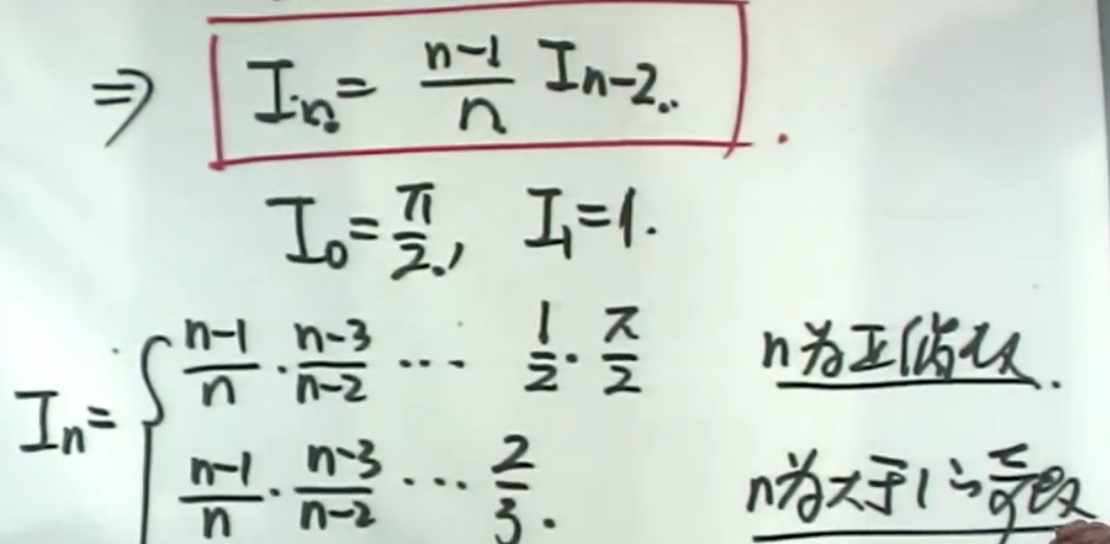 ⇒ Iₙ = (n-1)/n Iₙ₋₂.
I₀ = π/2, I₁ = 1.
Iₙ = { (n-1)/n · (n-3)/(n-2) ··· 1/2 · π/2 n为正偶数.
(n-1)/n · (n-3)/(n-2) ··· 2/3. n为大于1的奇数